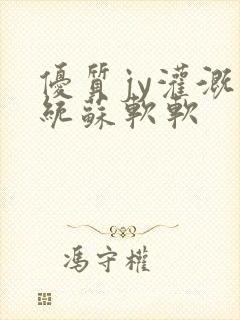 優質jy灌溉
統蘇軟軟
馮守權